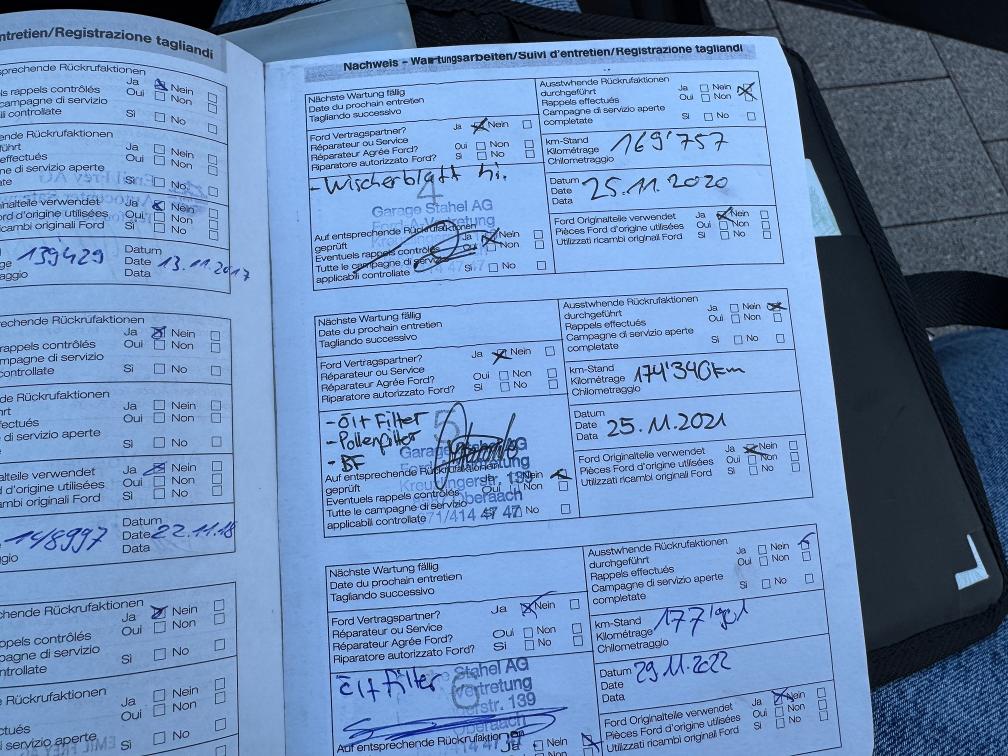 ntretien/Registrazione tagliandi
sprechende Rückrufaktionen
Ja Nein
s rappels contrôlés
Oui Non
campagne di servizio
i controllate
Si No
Ja Nein
effectués
Oui Non
ne di servizio aperte
Si No
inalteile verwendet
Ja Nein
ord d'origine utilisées
Oui Non
cambi originali Ford
Si No
139429
Datum
Date 13.11.2017
Data
aggio
echende Rückrufaktionen
Ja Nein
rappels contrôlés
Oui Non
mpagne di servizio
controllate
Si No
nde Rückrufaktionen
Ja Nein
ectués
Oui Non
di servizio aperte
Si No
alteile verwendet
Ja Nein
d'origine utilisées
Oui Non
mbi originali Ford
Si No
148997
Datum
Date 22.11.18
Data
hende Rückrufaktionen
Ja Nein
ppels contrôlés
Oui Non
pagne di servizio
ntrollate
Si No
e Rückrufaktionen
Ja Nein
ctués
Oui Non
i servizio aperte
Si No
Nachweis – Wartungsarbeiten/Suivi d'entretien/Registrazione tagliandi
Nächste Wartung fällig
Date du prochain entretien
Tagliando successivo
Ausstwhende Rückrufaktionen
durchgeführt
Ja Nein
Rappels effectués
Oui Non
Campagne di servizio aperte
completate
Si No
Ford Vertragspartner?
Ja Nein
Réparateur ou Service
Oui Non
Réparateur Agrée Ford?
Riparatore autorizzato Ford?
Si No
km-Stand
Kilométrage 169'757
Chilometraggio
- Wischerblatt hi.
4
Garage Stahel AG
Datum
Date 25.11.2020
Data
Auf entsprechende Rückrufaktionen
geprüft
Ja Nein
Eventuels rappels contrôlés
Oui Non
Tutte le campagne di servizio
applicabili controllate
Si No
Ford Originalteile verwendet
Ja Nein
Pièces Ford d'origine utilisées
Oui Non
Utilizzati ricambi originali Ford
Si No
Nächste Wartung fällig
Date du prochain entretien
Tagliando successivo
Ausstwhende Rückrufaktionen
durchgeführt
Ja Nein
Rappels effectués
Oui Non
Campagne di servizio aperte
completate
Si No
Ford Vertragspartner?
Ja Nein
Réparateur ou Service
Oui Non
Réparateur Agrée Ford?
Riparatore autorizzato Ford?
Si No
km-Stand
Kilométrage 174'340km
Chilometraggio
- Öl+Filter
- Pollenfilter
- BF
5
Datum
Date 25.11.2021
Data
Auf entsprechende Rückrufaktionen
geprüft
Nein
Eventuels rappels contrôlés
Oui Non
Tutte le campagne di servizio
applicabili controllate
No
071/414 47 47
Ford Originalteile verwendet
Ja Nein
Pièces Ford d'origine utilisées
Oui Non
Utilizzati ricambi originali Ford
Si No
Nächste Wartung fällig
Date du prochain entretien
Tagliando successivo
Ausstwhende Rückrufaktionen
durchgeführt
Ja Nein
Rappels effectués
Oui Non
Campagne di servizio aperte
completate
Si No
Ford Vertragspartner?
Ja Nein
Réparateur ou Service
Oui Non
Réparateur Agrée Ford?
Riparatore autorizzato Ford?
Si No
km-Stand
Kilométrage
Chilometraggio
Öl+Filter
6
Stahel AG
Vertretung
rstr. 139
Oberaach
Datum
Date 29.11.2022
Data
Auf entsprechende Rückrufaktionen
Ja Nein
Ford Originalteile verwendet
Ja Nein
Pièces Ford d'origine utilisées
Oui Non
Utilizzati ricambi originali Ford
Si No